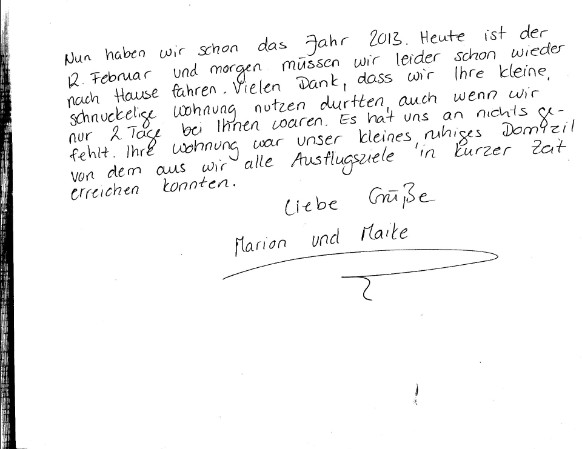 Nun haben wir schon das Jahr 2013. Heute ist der
12. Februar und morgen müssen wir leider schon wieder
nach Hause fahren. Vielen Dank, dass wir Ihre kleine,
schnuckelige Wohnung nutzen durften, auch wenn wir
nur 2 Tage bei Ihnen waren. Es hat uns an nichts ge-
fehlt. Ihre Wohnung war unser kleines, ruhiges Domizil
von dem aus wir alle Ausflugsziele in kurzer Zeit
erreichen konnten.
Liebe Grüße
Marion und Maike